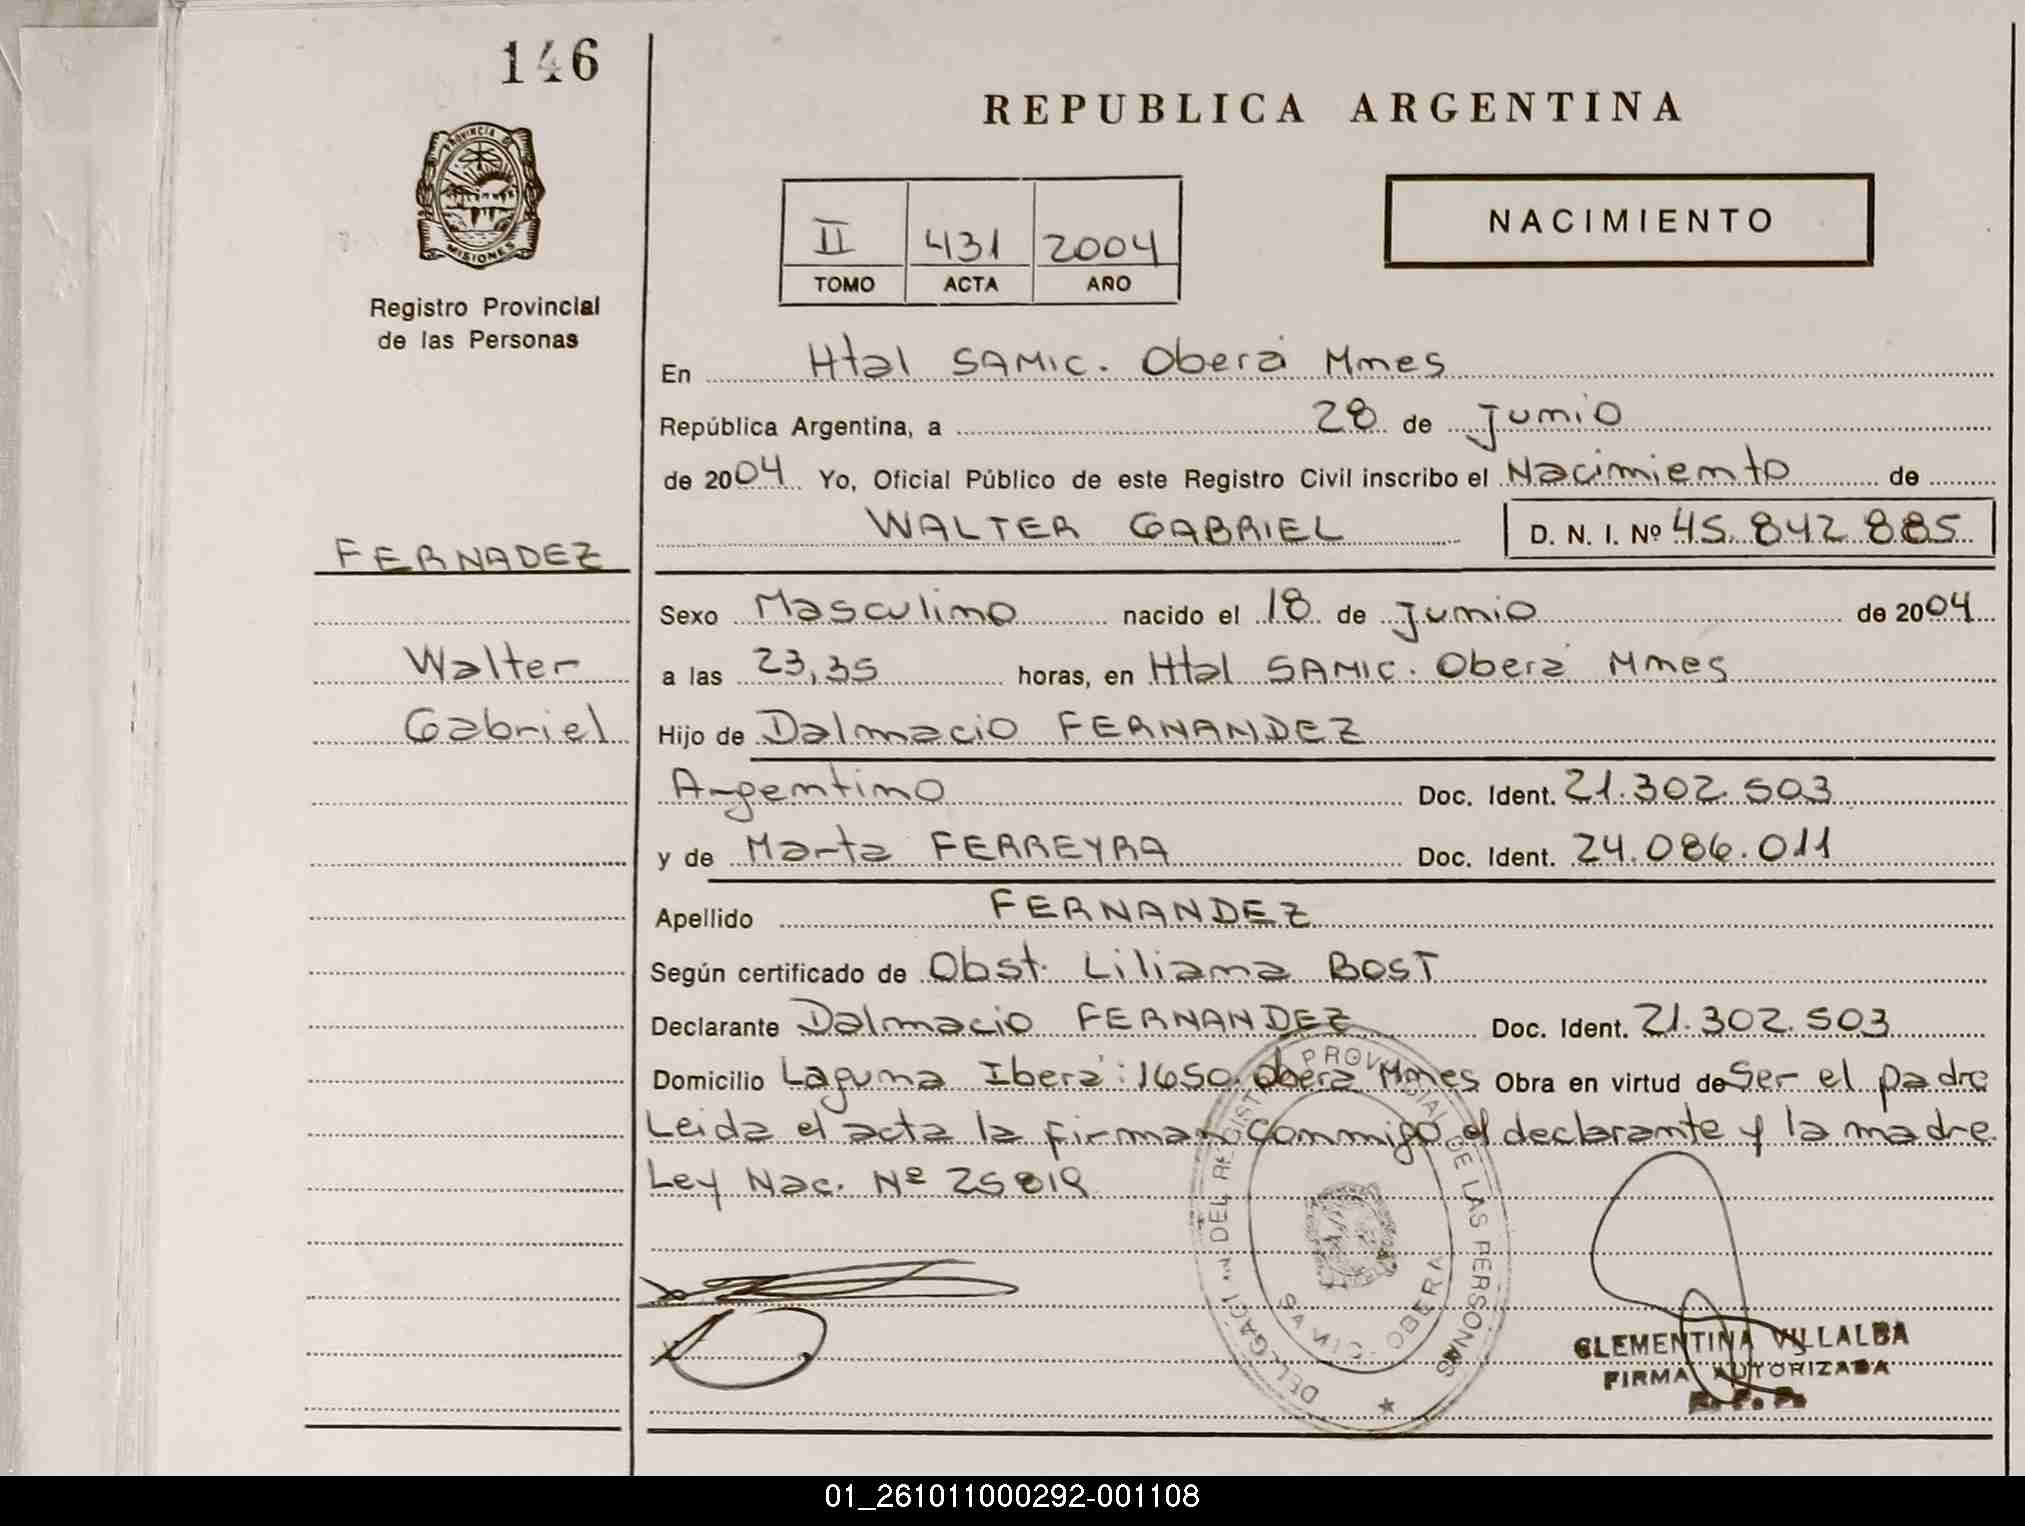 146
REPUBLICA ARGENTINA
PROVINCIA DE
MISIONES
NACIMIENTO
II 431 2004
TOMO ACTA AÑO
Registro Provincial
de las Personas
En Htal SAMIC. Oberá Mnes
República Argentina, a 28 de Junio
de 2004 Yo, Oficial Público de este Registro Civil inscribo el Nacimiento de
WALTER GABRIEL D. N. I. Nº 45.842.885
FERNADEZ
Sexo Masculino nacido el 18 de Junio de 2004
Walter
a las 23,35 horas, en Htal SAMIC. Oberá Mnes
Gabriel
Hijo de Dalmacio FERNANDEZ
Argentino Doc. Ident. 21.302.503
y de Marta FERREYRA Doc. Ident. 24.086.011
Apellido FERNANDEZ
Según certificado de Obst. Liliana BOST
Declarante Dalmacio FERNANDEZ Doc. Ident. 21.302.503
Domicilio Laguna Iberá: 1650. Oberá Mnes Obra en virtud de Ser el padre
Leida el acta la firman conmigo el declarante y la madre.
Ley Nac. Nº 25819
DELEGACION DEL REGISTRO PROVINCIAL DE LAS PERSONAS
OBERA
CLEMENTINA VILLALBA
FIRMA AUTORIZADA
R. P. P.
01_261011000292-001108